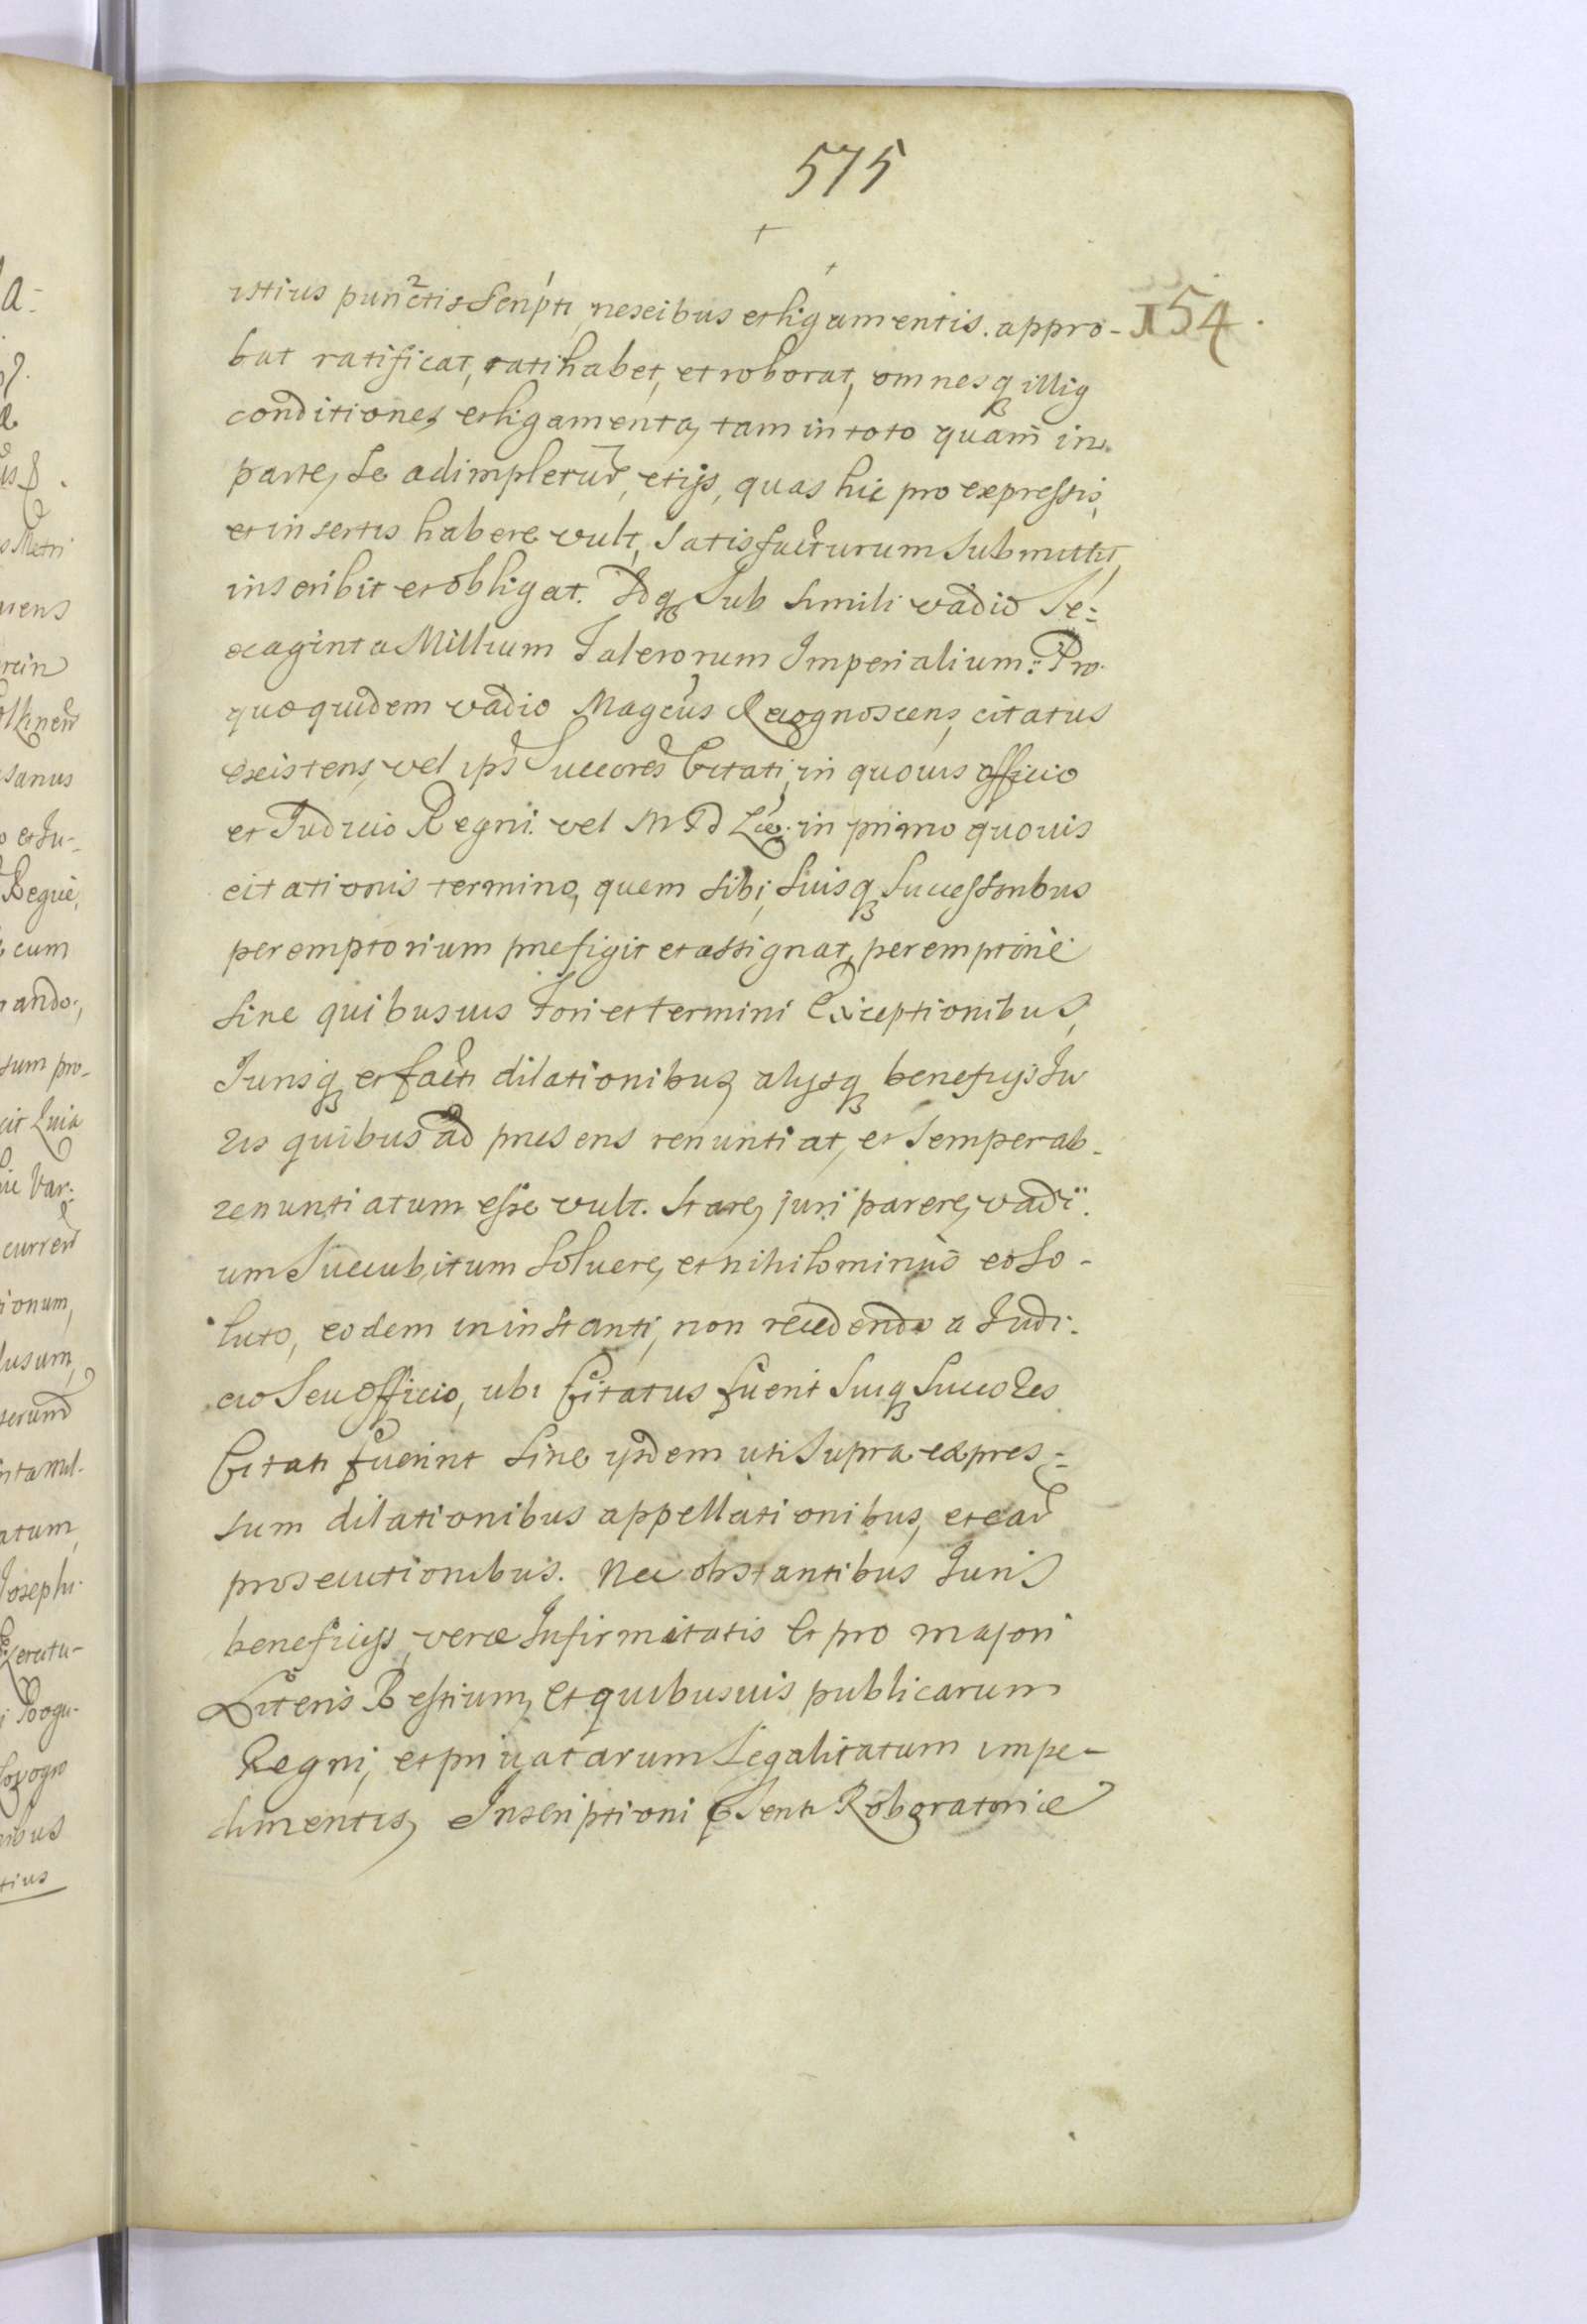 575
istius punctis Scripti, nexibus et ligamentis. appro- 154.
bat ratificat, ratihabet, et roborat, omnesq illig
conditiones et ligamenta, tam in toto quam in
parte, Se adimpletur, et ijs, quas hic pro expressis,
et insertis habere vult, Satisfacturum Submittit,
inscribit et obligat. Idq Sub simili vadio Se:
xaginta Millium Talerorum Imperialium: Pro
quo quidem vadio Magcus Recognoscens, citatus
existens, vel ips Succores Citati, in quovis officio
et Judicio Regni vel M D L in primo quovis
citationis termino, quem sibi, suisq Successoribus
peremptorium prefigit et assignat, peremptorie
Sine quibusvis fori et termini Exceptionibus,
Jurisq et facti dilationibus, alijsq beneficijs Ju
ris quibus ad presens renuntiat, et Semper ab-
renuntiatum esse vult. Stare, juri parere, vadi:
um Succubitum Soluere, et nihilominus eo So-
luto, eodem in instanti, non recedendo a Judi:
cio Seu Officio, ubi Citatus fuerit Suiq Succores
Citati fuerint Sine ijsdem uti Supra expres-
sum dilationibus appellationibus, et ear
prosecutionibus. Nec obstantibus Juris
beneficijs, veræ Infirmitatis Et pro majori
Literis Bestium, Et quibusuis publicarum
Regni, et privatarum Legalitatum impe-
dimentis, Inscriptioni Roboratoriæ